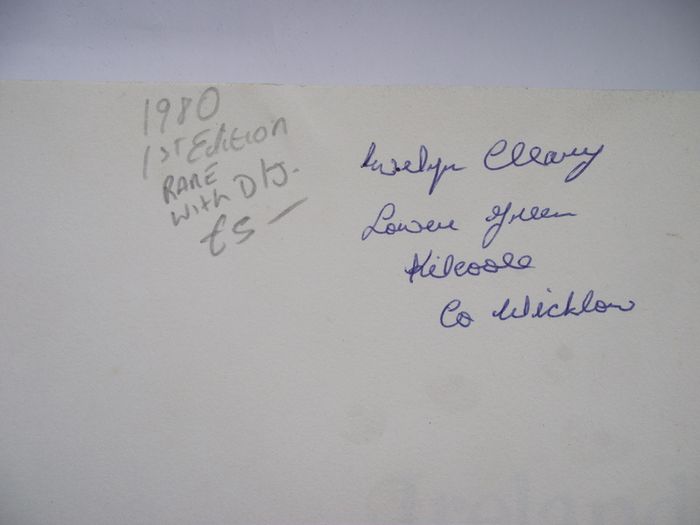 1980
1ST Edition
RARE
WITH D/J.
£5 —
Evelyn Cleary
Lower Green
Kilcoole
Co Wicklow